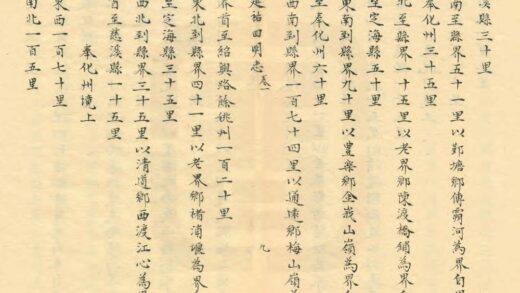 溪縣三十里
南至縣界五十一里以鄞塘鄉傅翁河為界自界
奉化州三十五里
北至縣界一十五里以老界鄉陳渡橋鋪為界
至定海縣五十里
東南到縣界九十里以豐樂鄉金峩山嶺為界
至奉化州六十里
西南到縣界一百七十四里以通遠鄉梅山嶺為
延祐四明志 卷一 九
界首至紹興路餘姚州一百二十里
東北到縣界四十一里以老界鄉楮浦堰為界
至定海縣三十五里
西北到縣界三十五里以清道鄉西渡江心為
首至慈溪縣一十五里
奉化州境土
東西一百七十里
南北一百五里